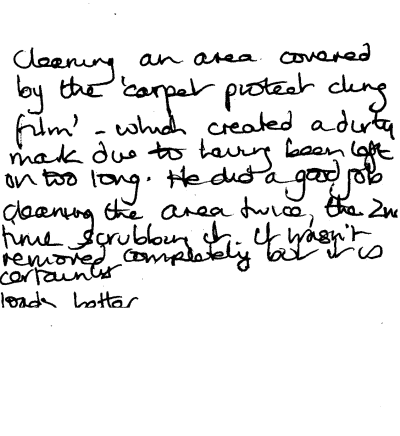 Cleaning an area covered
by the 'carpet protect cling
film' - which created a dirty
mark due to having been left
on too long. He did a good job
cleaning the area twice, the 2nd
time scrubbing it. It wasn't
removed completely but it is
certainly
loads better